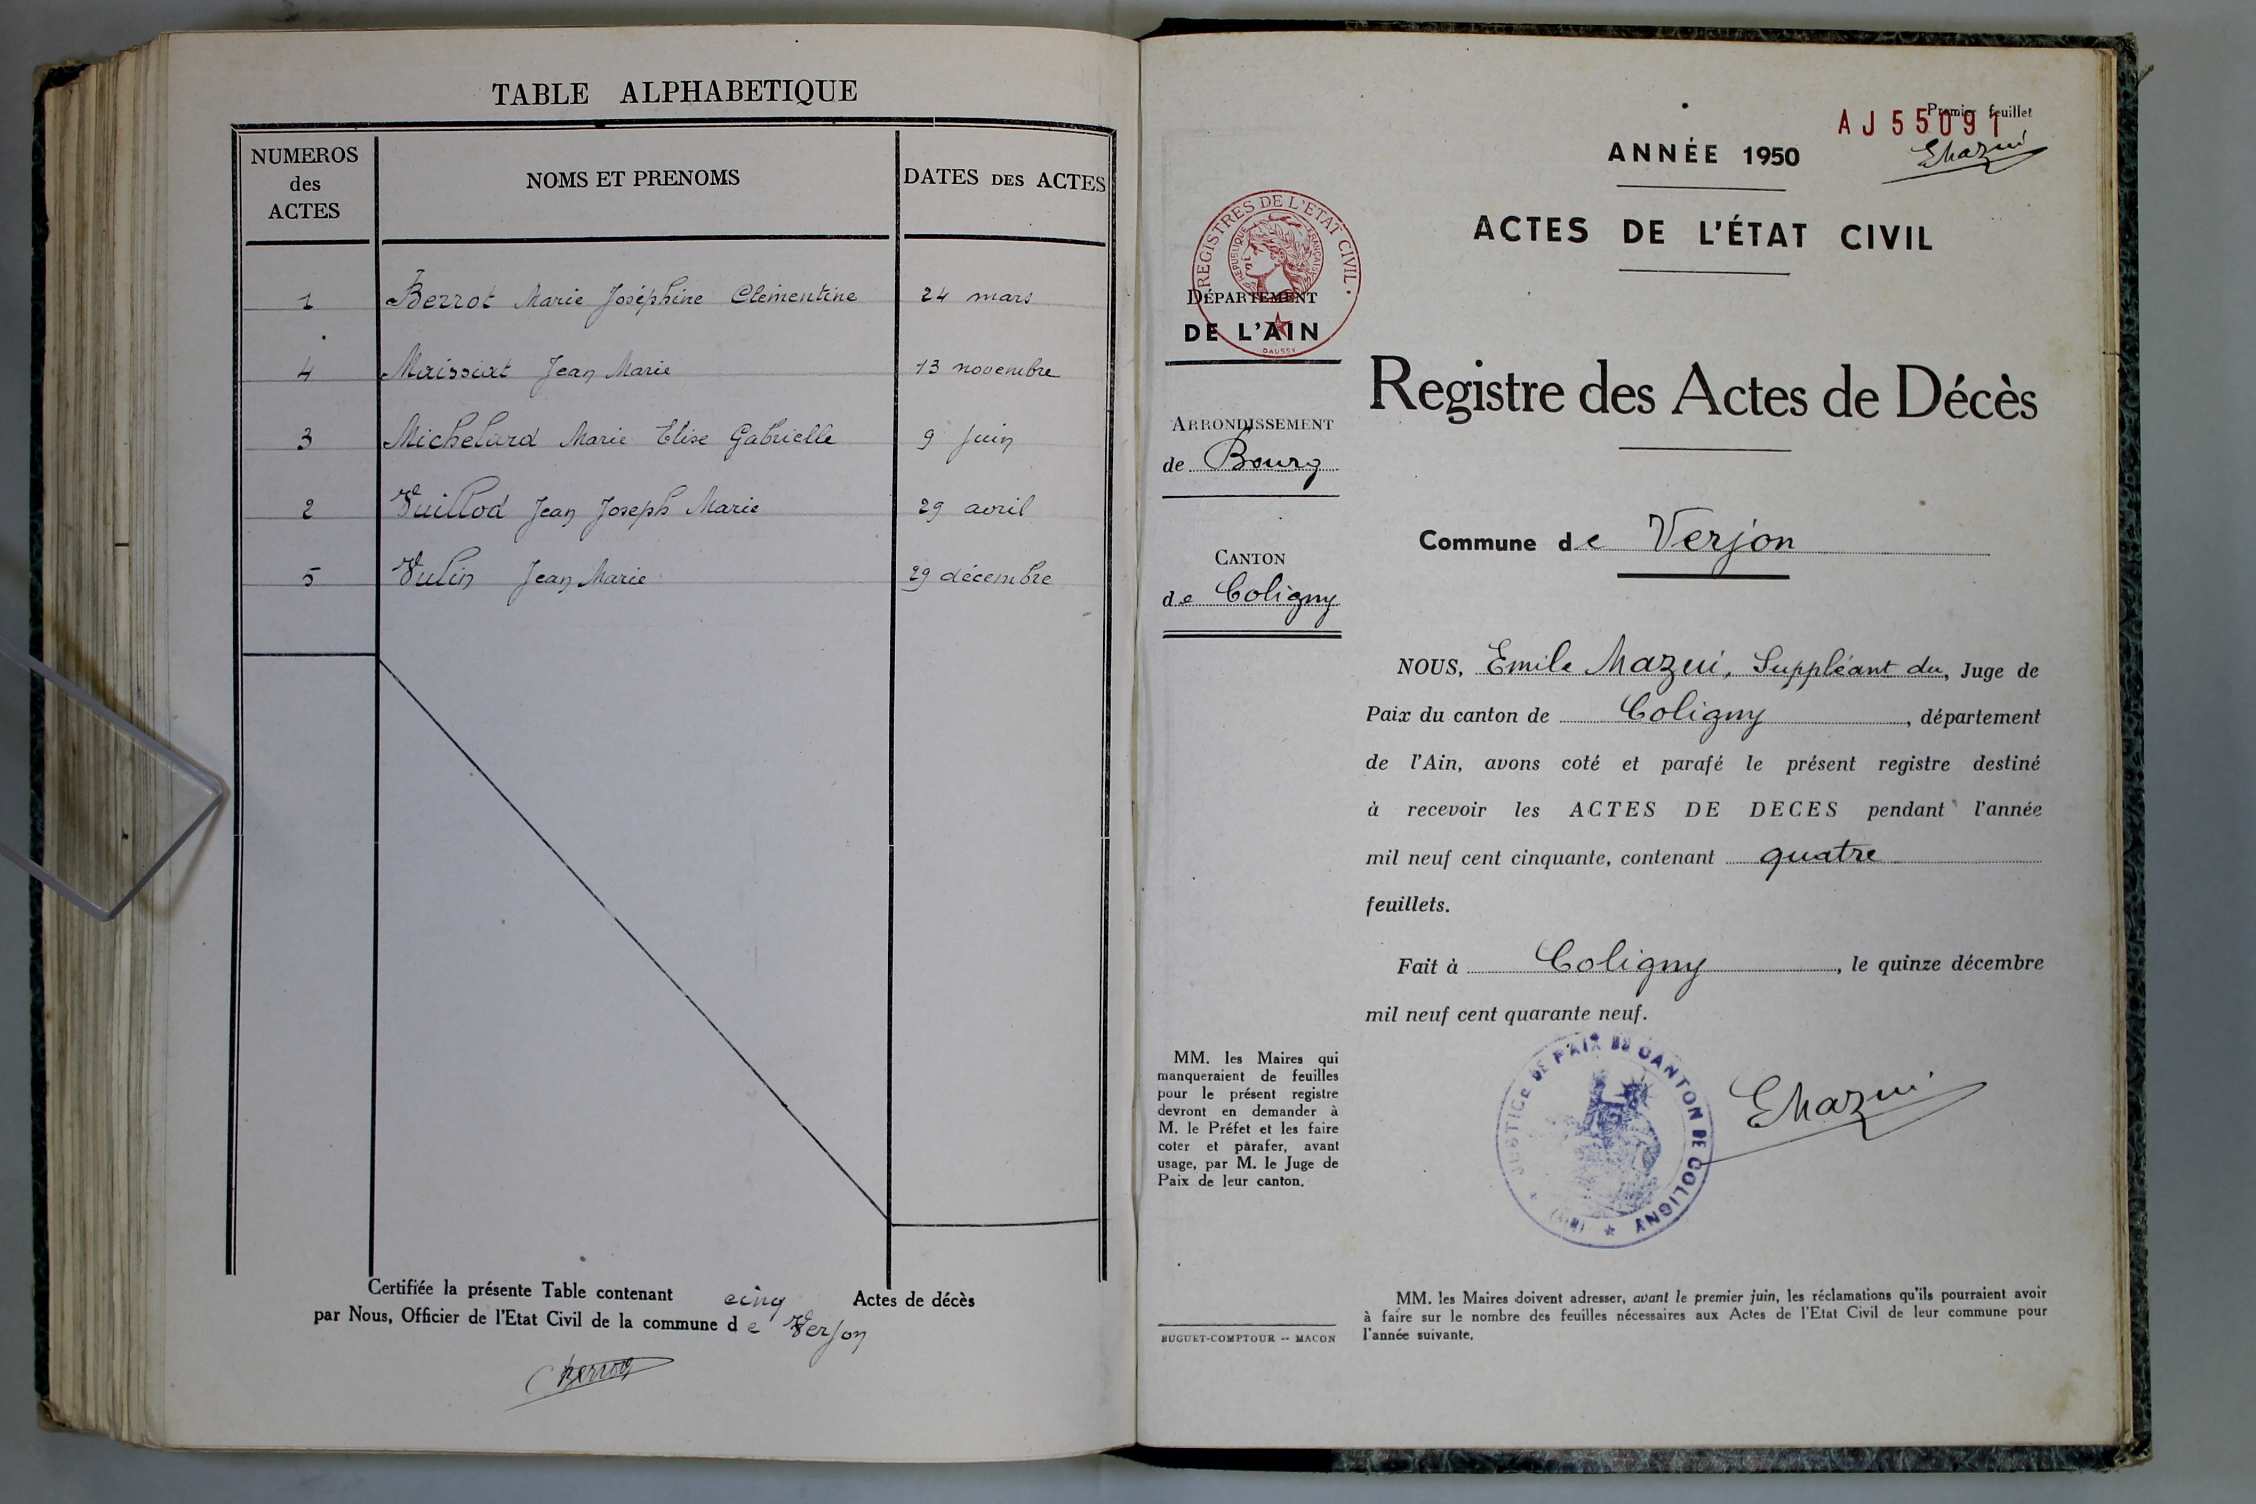 TABLE ALPHABETIQUE
NUMEROS
des
ACTES
NOMS ET PRENOMS
DATES DES ACTES
1 Berrot Marie Joséphine Clémentine 24 mars
4 Maissiat Jean Marie 13 novembre
3 Michelard Marie Elise Gabrielle 9 juin
2 Vuillod Jean Joseph Marie 29 avril
5 Vulin Jean Marie 29 décembre
Certifiée la présente Table contenant cinq Actes de décès
par Nous, Officier de l'Etat Civil de la commune de Verjon
Premier feuillet
AJ55091
EMazui
ANNÉE 1950
ACTES DE L'ÉTAT CIVIL
REGISTRES DE L'ETAT CIVIL
REPUBLIQUE FRANÇAISE
DAUSSY
DÉPARTEMENT
DE L'AIN
Registre des Actes de Décès
ARRONDISSEMENT
de Bourg
Commune de Verjon
CANTON
de Coligny
NOUS, Emile Mazui, Suppléant du, Juge de
Paix du canton de Coligny, département
de l'Ain, avons coté et parafé le présent registre destiné
à recevoir les ACTES DE DECES pendant l'année
mil neuf cent cinquante, contenant quatre
feuillets.
Fait à Coligny, le quinze décembre
mil neuf cent quarante neuf.
JUSTICE DE PAIX DU CANTON DE COLIGNY
(AIN)
EMazui
MM. les Maires qui
manqueraient de feuilles
pour le présent registre
devront en demander à
M. le Préfet et les faire
coter et parafer, avant
usage, par M. le Juge de
Paix de leur canton.
BUGUET-COMPTOUR -- MACON
MM. les Maires doivent adresser, avant le premier juin, les réclamations qu'ils pourraient avoir
à faire sur le nombre des feuilles nécessaires aux Actes de l'Etat Civil de leur commune pour
l'année suivante.